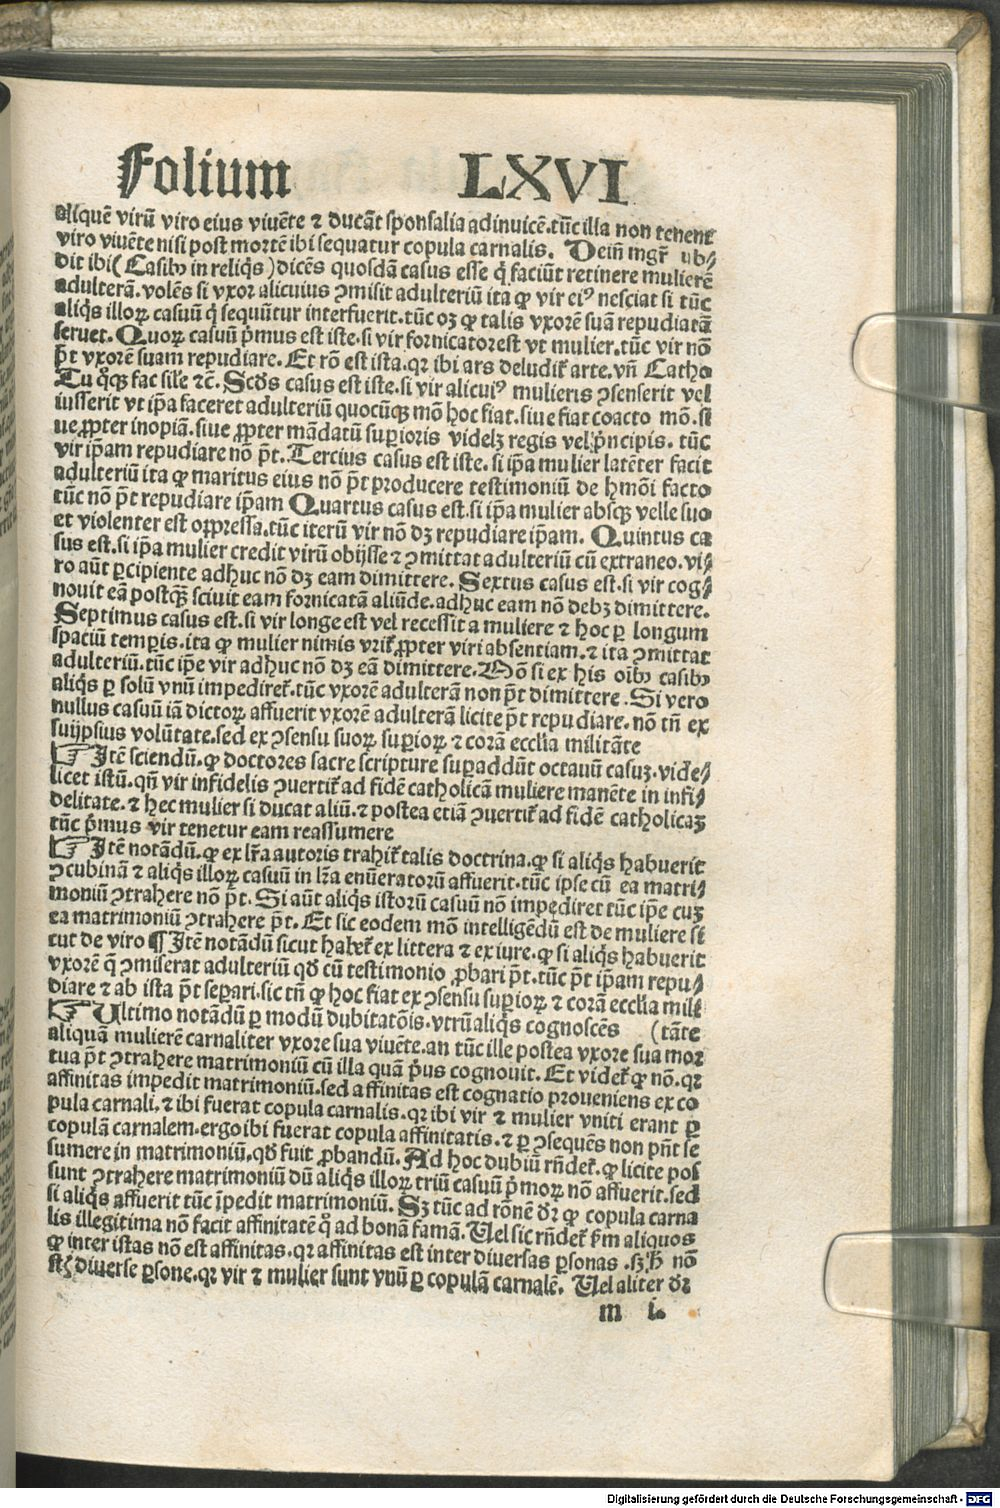 Folium LXVI
aliquē virū viro eius vivēte ⁊ ducāt sponsalia adinuicē.tūc illa non tenent
viro vivēte nisi post mortē ibi sequatur copula carnalis. Dein̄ mgr̄ ub⸗
dit ibi (Casibꝰ in reliq̄s) dicēs quosdā casus esse q̄ faciūt retinere mulierē
adulterā.volēs si vxor alicuius ꝯmisit adulteriū ita ꝙ vir eiꝰ nesciat si tūc
aliq̄s illoꝝ casuū q̄ sequūtur interfuerit.tūc oꝫ ꝙ talis vxorē suā repudiatā
seruet. Quoꝝ casuū p̄mus est iste.si vir fornicator est vt mulier.tūc vir nō
p̄t vxorē suam repudiare. Et rō est ista.qꝛ ibi ars deludit̄ arte.vn̄ Catho
Tu q̊qꝫ fac sil̄e ⁊c̄. Scd̄s casus est iste.si vir alicuiꝰ mulieris ꝯsenserit vel
iusserit vt ip̄a faceret adulteriū quocūqꝫ mō hoc fiat.siue fiat coacto mō.si
ue ꝓpter inopiā.siue ꝓpter mādatū suꝑioris videlꝫ regis vel p̄ncipis. tūc
vir ip̄am repudiare nō p̄t. Tercius casus est iste.si ip̄a mulier latēter facit
adulteriū ita ꝙ maritus eius nō p̄t producere testimoniū de hmōi facto
tūc nō p̄t repudiare ip̄am Quartus casus est.si ip̄a mulier absqꝫ velle suo
et violenter est oppressa.tūc iterū vir nō dꝫ repudiare ip̄am. Quintus ca
sus est.si ip̄a mulier credit virū obijsse ⁊ ꝯmittat adulteriū cū extraneo.vi⸗
ro aūt ꝑcipiente adhuc nō dꝫ eam dimittere. Sextus casus est.si vir cog⸗
nouit eā postqꝫ̄ sciuit eam fornicatā aliūde.adhuc eam nō debꝫ dimittere.
Septimus casus est.si vir longe est vel recessit a muliere ⁊ hoc ꝑ longum
spaciū temꝑis.ita ꝙ mulier nimis vrit̄ ꝓpter viri absentiam.⁊ ita ꝯmittat
adulteriū.tūc ip̄e vir adhuc nō dꝫ eā dimittere. Uñ si ex his oībꝰ casibꝰ
aliq̄s ꝑ solū vnū impediret̄.tūc vxorē adulterā non p̄t dimittere. Si vero
nullus casuū iā dictoꝝ affuerit vxorē adulterā licite p̄t repudiare.nō tn̄ ex
suijpsius volūtate.sed ex ꝯsensu suoꝝ suꝑioꝝ ⁊ corā eccl̄ia militāte
☞ Itē sciendū.ꝙ doctores sacre scripture suꝑaddūt octauū casuꝫ.vide⸗
licet istū.qn̄ vir infidelis ꝯuertit̄ ad fidē catholicā muliere manēte in infi⸗
delitate.⁊ hec mulier si ducat aliū.⁊ postea etiā ꝯuertit̄ ad fidē catholicaꝫ
tūc p̄mus vir tenetur eam reassumere
☞ Itē notādū.ꝙ ex lr̄a autoris trahit̄ talis doctrina.ꝙ si aliq̄s habuerit
ꝯcubinā ⁊ aliq̄s illoꝝ casuū in lr̄a enūeratorū affuerit.tūc ipse cū ea matri⸗
moniū ꝯtrahere nō p̄t. Si aūt aliq̄s istorū casuū nō impediret tūc ip̄e cuꝫ
ea matrimoniū ꝯtrahere p̄t. Et sic eodem mō intelligēdū est de muliere si
cut de viro ¶ Itē notādū sicut habet̄ ex littera ⁊ ex iure.ꝙ si aliq̄s habuerit
vxorē q̄ ꝯmiserat adulteriū qd̄ cū testimonio ꝓbari p̄t.tūc p̄t ip̄am repu⸗
diare ⁊ ab ista p̄t seꝑari.sic tn̄ ꝙ hoc fiat ex ꝯsensu suꝑioꝝ ⁊ corā eccl̄ia mili
☞ Ultimo notādū ꝑ modū dubitatōis.vtrū aliq̄s cognoscēs (tāte
aliquā mulierē carnaliter vxore sua vivēte.an tūc ille postea vxore sua mor
tua p̄t ꝯtrahere matrimoniū cū illa quā p̄us cognouit. Et videt̄ ꝙ nō.qꝛ
affinitas impedit matrimoniū.sed affinitas est cognatio proueniens ex co
pula carnali.⁊ ibi fuerat copula carnalis.qꝛ ibi vir ⁊ mulier vniti erant ꝑ
copulā carnalem.ergo ibi fuerat copula affinitatis.⁊ ꝑ ꝯsequēs non pn̄t se
sumere in matrimoniū.qd̄ fuit ꝓbandū. Ad hoc dubiū rn̄det̄.ꝙ licite pos
sunt ꝯtrahere matrimoniū dū aliq̄s illoꝝ triū casuū p̄moꝝ nō affuerit.sed
si aliq̄s affuerit tūc īpedit matrimoniū. Sꝫ tūc ad rōnē dr̄ ꝙ copula carna
lis illegitima nō facit affinitatē q̊ ad bonā famā. Uel sic rn̄det̄ ẜm aliquos
ꝙ inter istas nō est affinitas.qꝛ affinitas est inter diuersas ꝑsonas.sꝫ h̄ nō
st̄ diuerse ꝑsone.qꝛ vir ⁊ mulier sunt vnū ꝑ copulā carnalē. Uel aliter dr̄
m i.
Digitalisierung gefördert durch die Deutsche Forschungsgemeinschaft - DFG